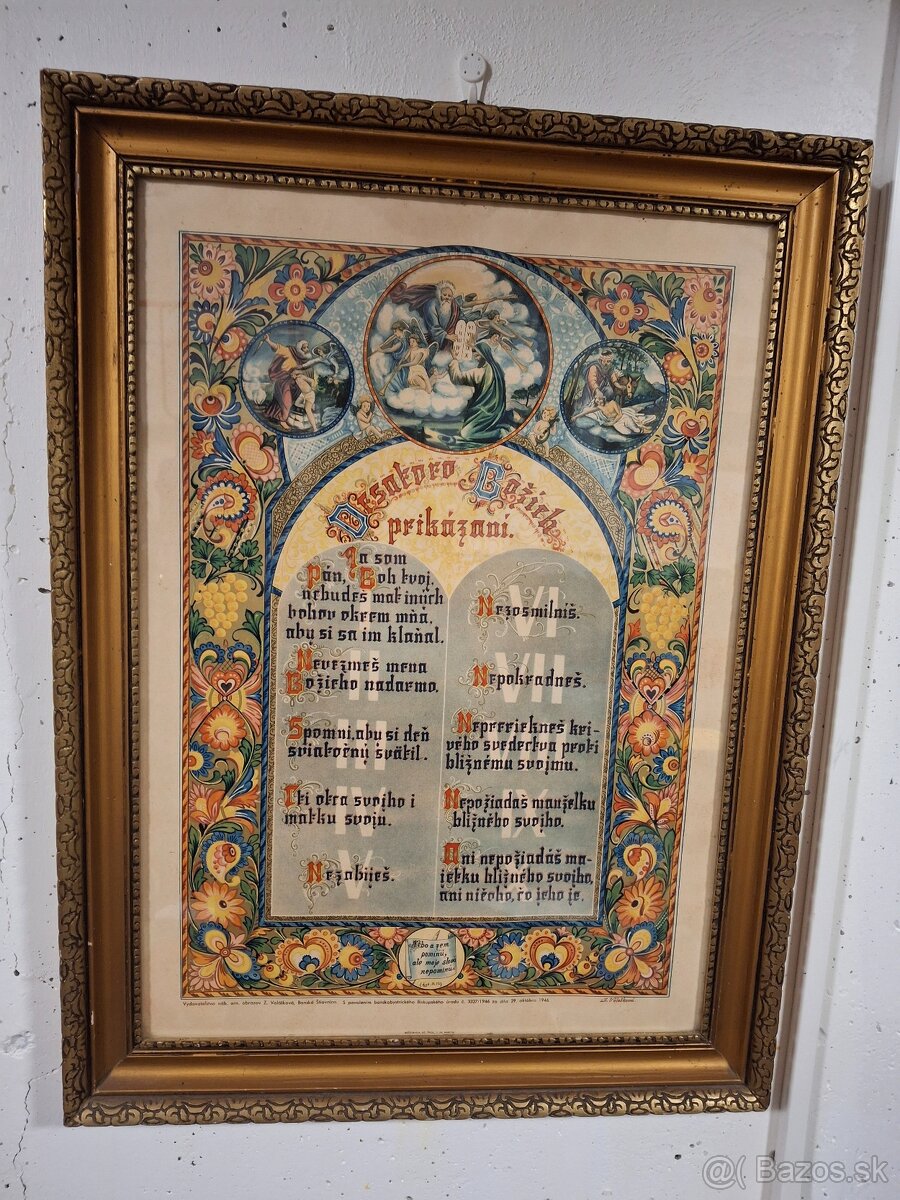 Desatoro Božích
prikázaní.
Ja som
Pán, Boh tvoj.
nebudeš mať iných
bohov okrem mňa,
aby si sa im klaňal.
Nevezmeš mena
Božieho nadarmo.
Spomni, aby si deň
sviatočný svätil.
Cti otca svojho i
matku svoju.
Nezabiješ.
I
II
III
IV
V
Nezosmilníš.
Nepokradneš.
Nepreriekneš kri-
vého svedectva proti
bližnému svojmu.
Nepožiadaš manželku
bližného svojho.
Ani nepožiadáš ma-
jetku bližného svojho,
ani ničoho, čo jeho je.
VI
VII
IX
Nebo a zem
pominú,
ale moje slová
nepominú.
Vydavateľstvo náb. um. obrazov Z. Valášková, Banská Štiavnica. S povolením banskobystrického Biskupského úradu č. 3237/1946 zo dňa 29. októbra 1946
@( Bazos.sk